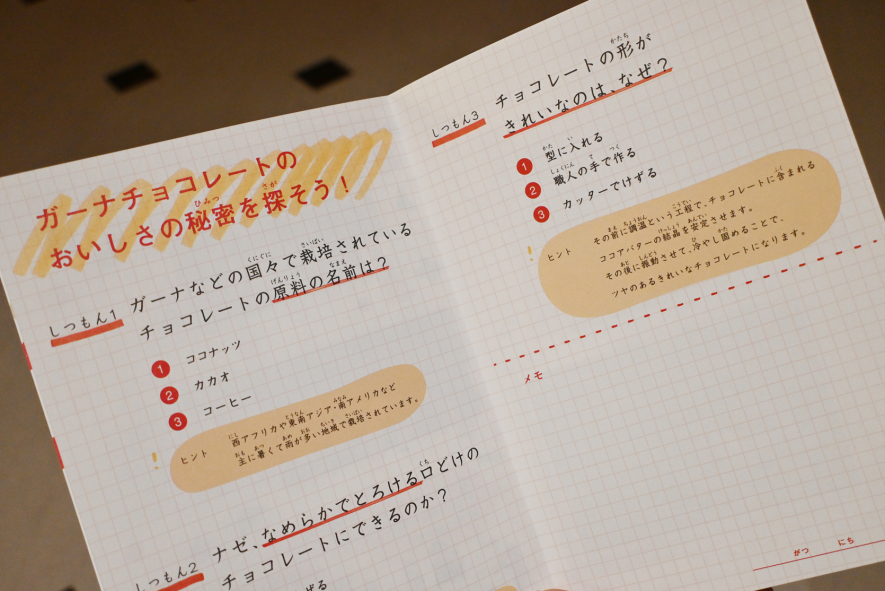 ガーナチョコレートの
おいしさの秘密を探そう！
しつもん1
ガーナなどの国々で栽培されている
チョコレートの原料の名前は？
1 ココナッツ
2 カカオ
3 コーヒー
ヒント
西アフリカや東南アジア・南アメリカなど
主に暑くて雨が多い地域で栽培されています。
しつもん2
ナゼ、なめらかでとろける口どけの
チョコレートにできるのか？
ぜる
しつもん3
チョコレートの形が
きれいなのは、なぜ？
1 型に入れる
2 職人の手で作る
3 カッターでけずる
ヒント
その前に調温という工程で、チョコレートに含まれる
ココアバターの結晶を安定させます。
その後に振動させて、冷やし固めることで、
ツヤのあるきれいなチョコレートになります。
メモ
がつ にち